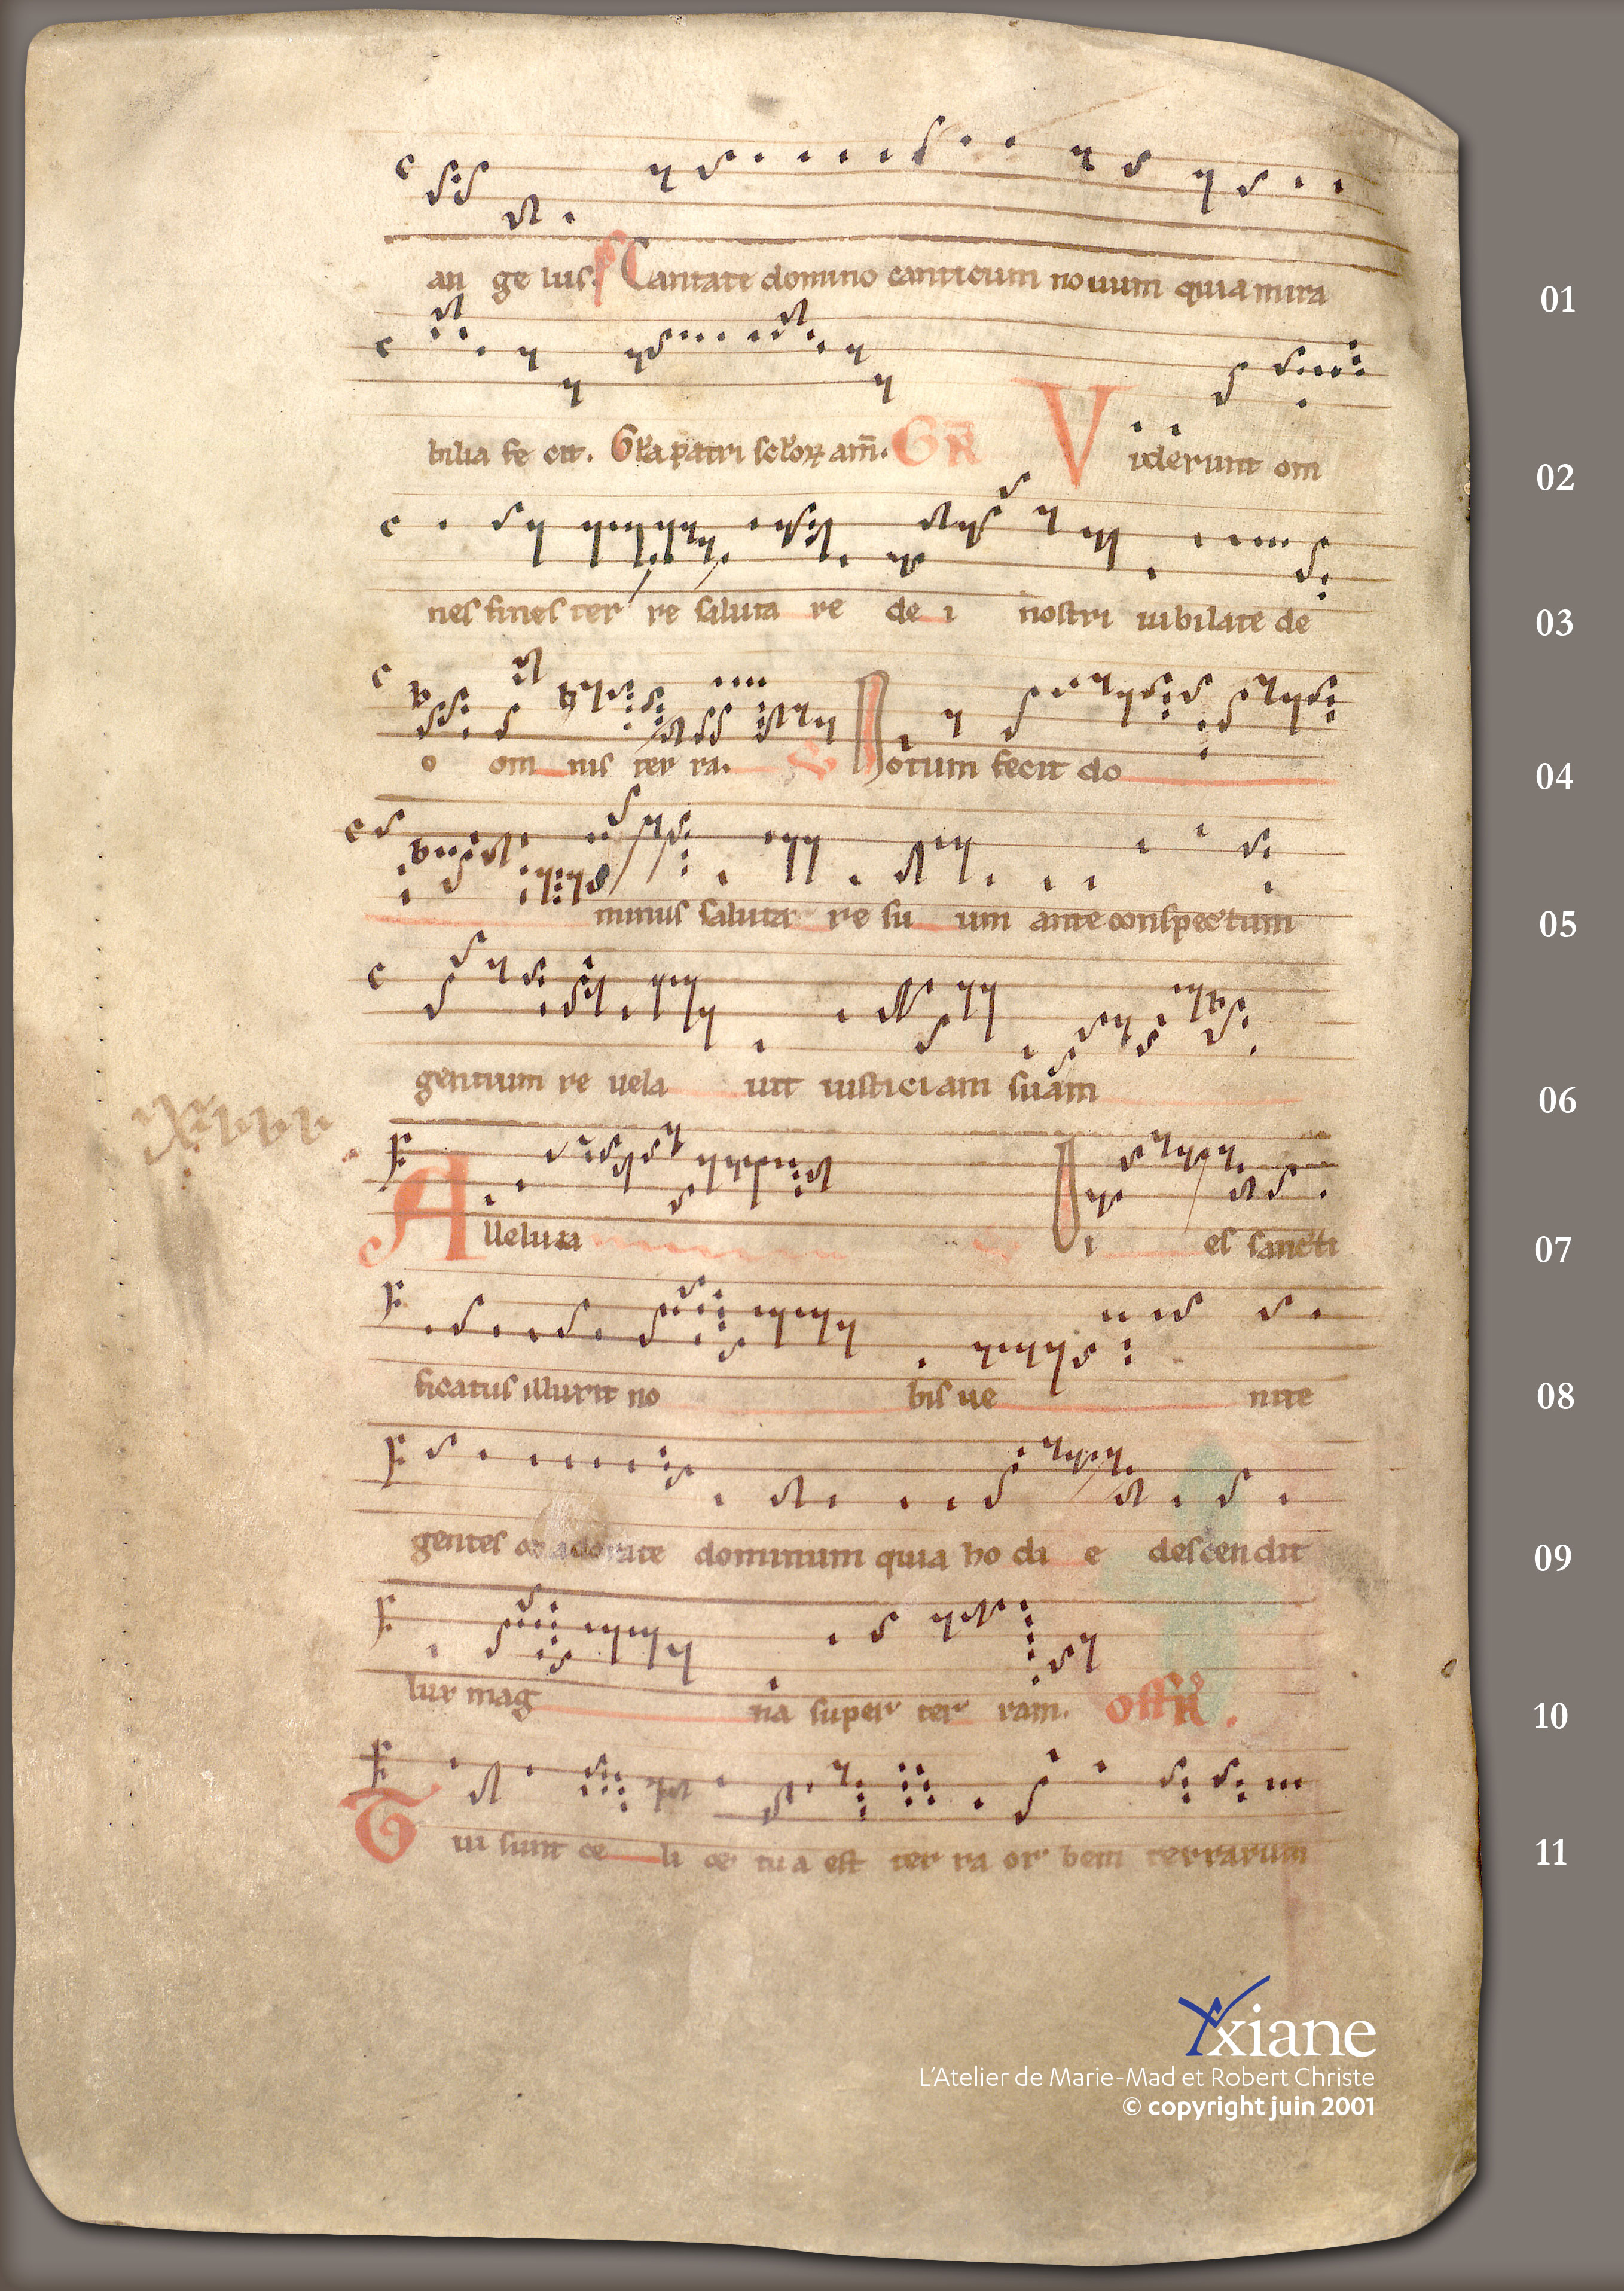 an ge lus. ps Cantate domino canticum nouum quia mira 01
bilia fe cit. Gl'a patri sclo'ꝝ am̄. GR Viderunt om 02
nes fines ter re saluta re de i nostri iubilate de 03
o om nis ter ra. V Notum fecit do 04
minus saluta re su um ante conspectum 05
gentium re uela uit iusticiam suam 06
Alleluia Di es sancti 07
ficatus illuxit no bis ue nite 08
gentes et adorate dominum quia ho di e descendit 09
lux mag na super ter ram. OFFR. 10
Tui sunt ce li et tu a est ter ra or bem terrarum 11
xiane
L'Atelier de Marie-Mad et Robert Christe
© copyright juin 2001